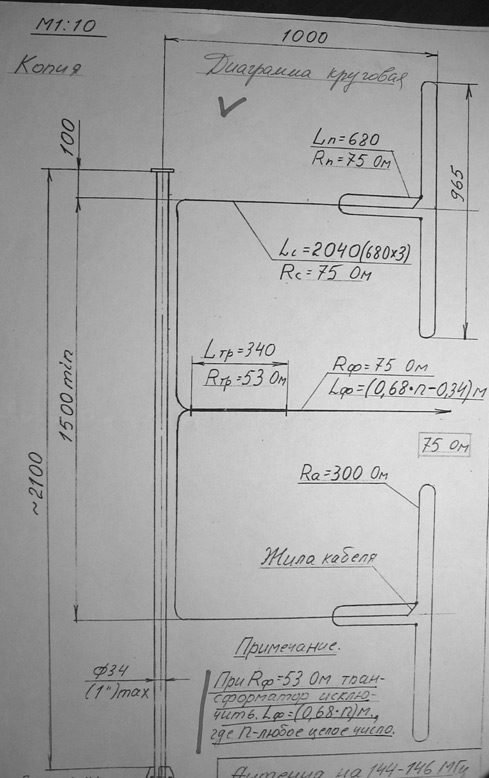 М1:10
1000
Копия
Диаграмма круговая
100
Lп=680
Rп=75 Ом
965
Lс=2040(680x3)
Rс=75 Ом
Lтр=340
Rтр=53 Ом
Rф=75 Ом
Lф=(0,68·n-0,34)м
1500min
~2100
75 Ом
Rа=300 Ом
Жила кабеля
Примечание.
ф34
(1")max
При Rф=53 Ом тран-
сформатор исклю-
чить. Lф=(0,68·п)м.,
где п-любое целое число.
Антенна на 144-146 МГц